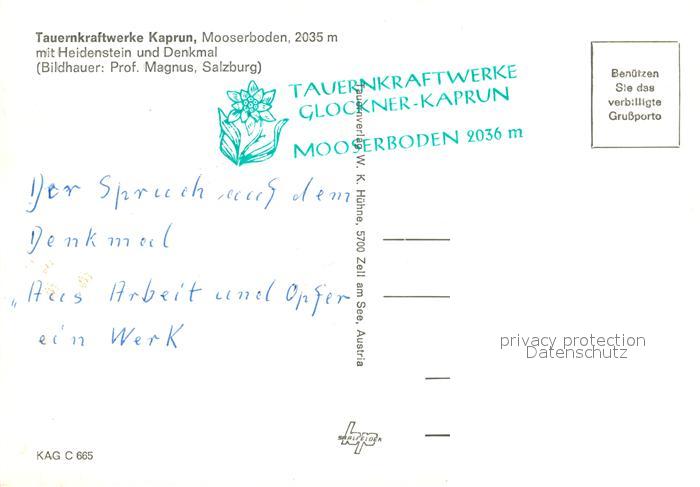 Tauernkraftwerke Kaprun, Mooserboden, 2035 m
mit Heidenstein und Denkmal
(Bildhauer: Prof. Magnus, Salzburg)
TAUERNKRAFTWERKE
GLOCKNER-KAPRUN
MOOSERBODEN 2036 m
Benützen
Sie das
verbilligte
Grußporto
Der Spruch auf dem
Denkmal
„Aus Arbeit und Opfer
ein Werk
Tauernverlag W. K. Hühne, 5700 Zell am See, Austria
privacy protection
Datenschutz
SAALFELDEN
KAG C 665